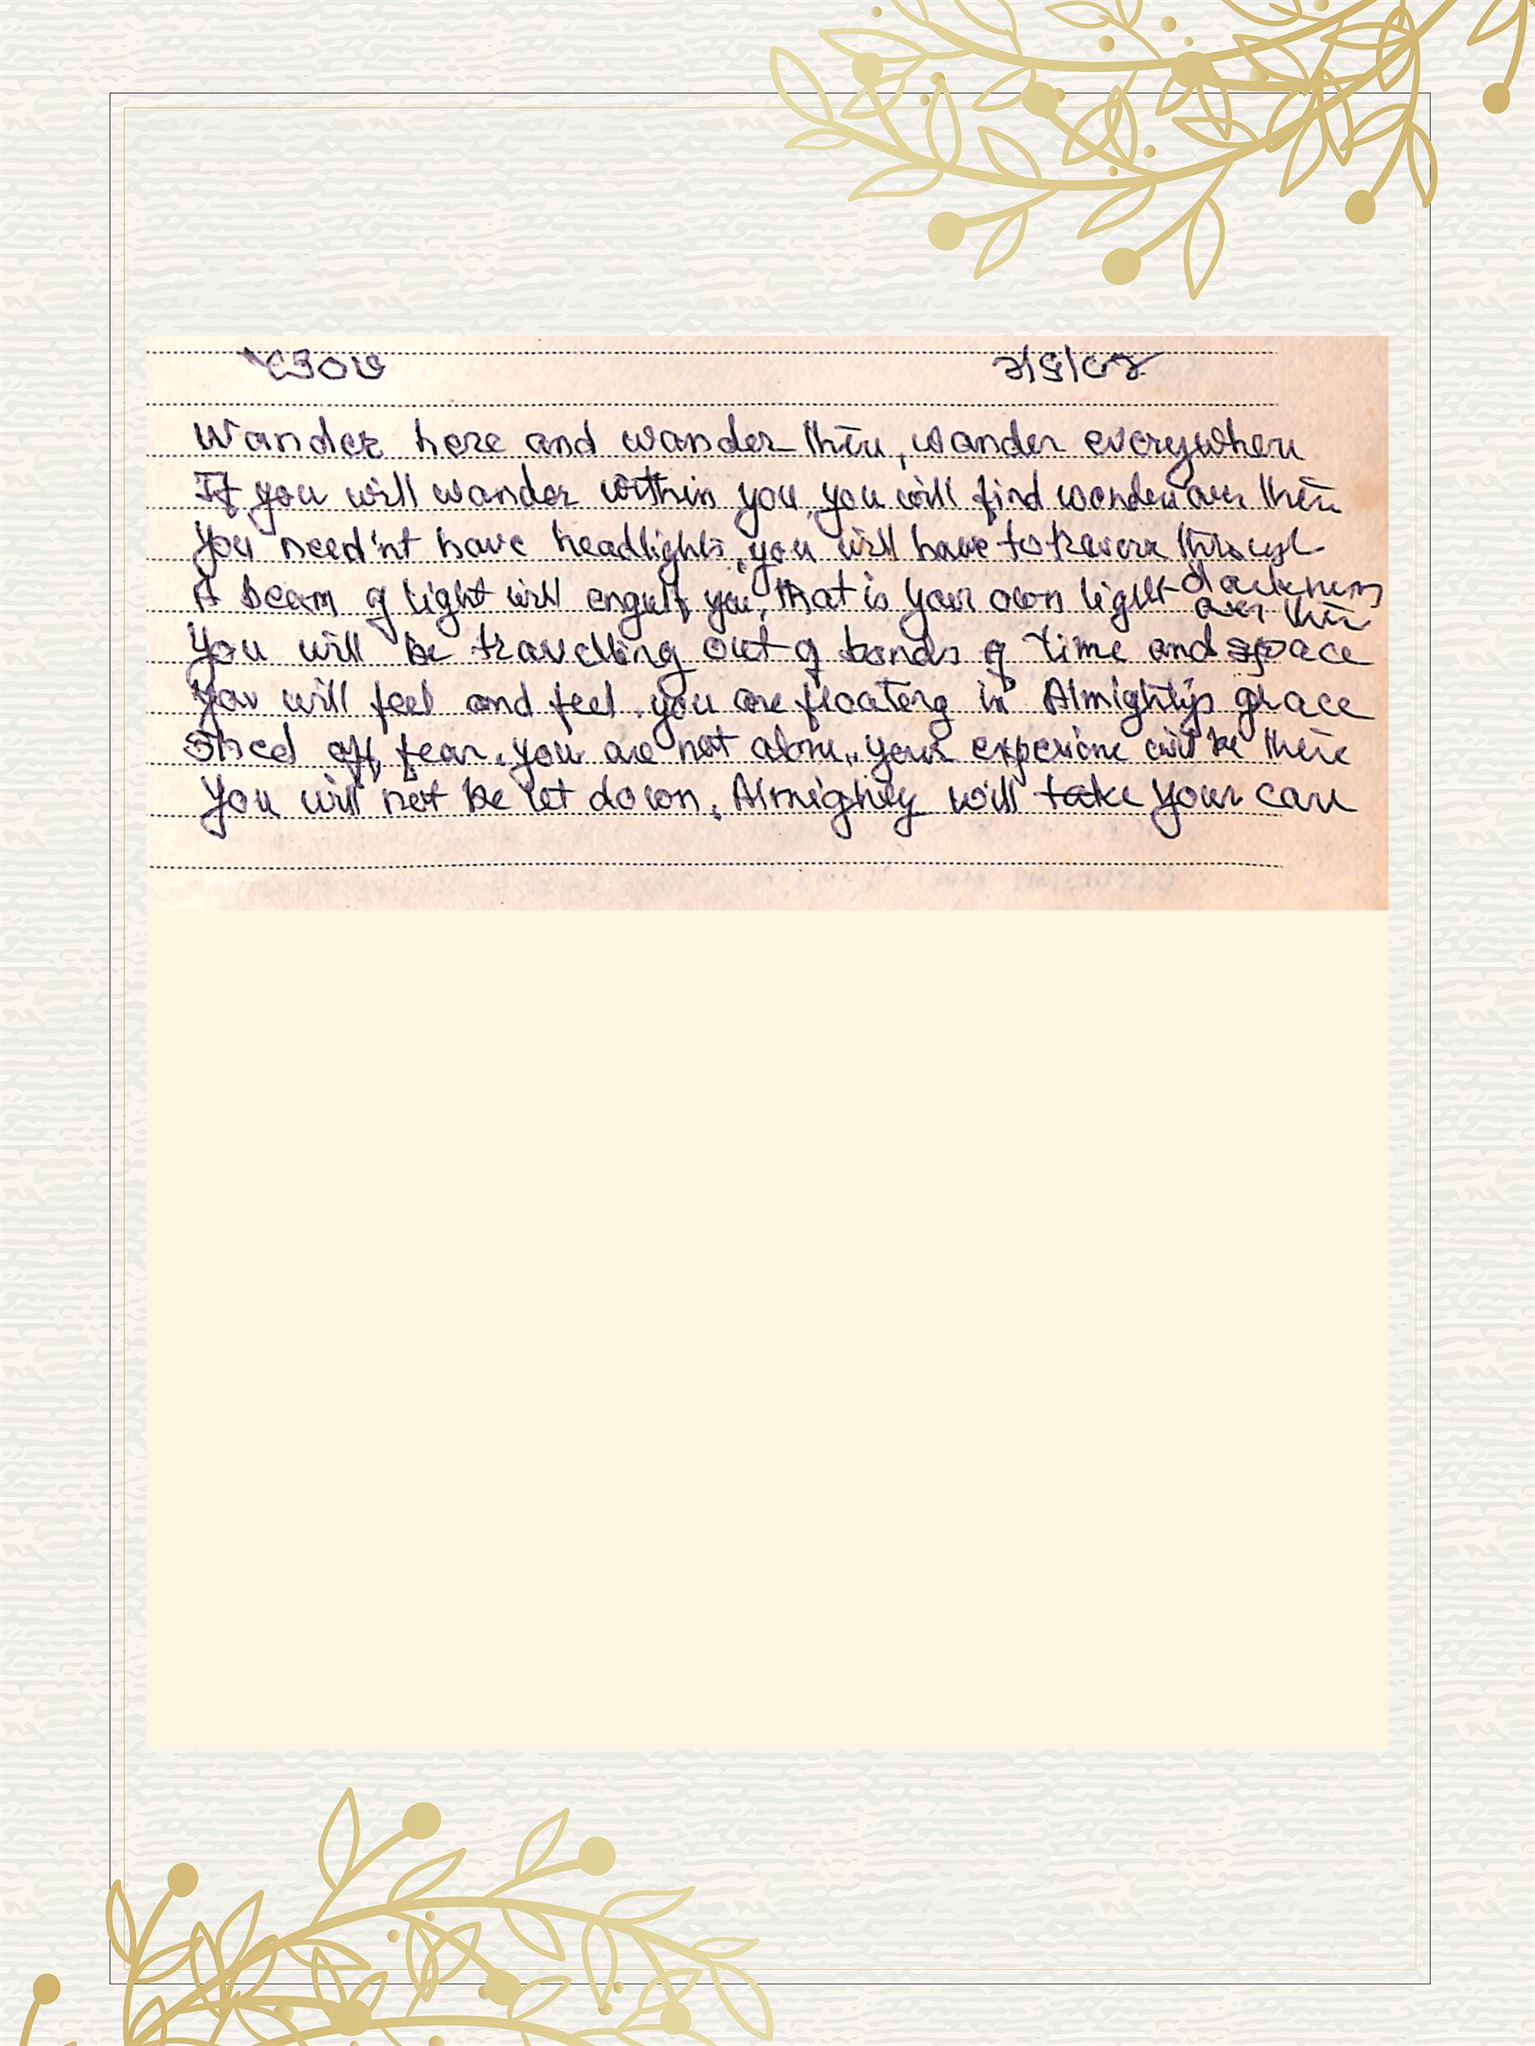 Wander here and wander there, wander everywhere
If you will wander within you, you will find wonders over there
You need'nt have headlights, you will have to traverse through
darkness
A beam of light will engulf you, that is your own light over there
You will be travelling out of bonds of time and space
You will feel and feel, you are floating in Almighty's grace
Shed off fear, you are not alone, your experience will be there
You will not be let down, Almighty will take your care